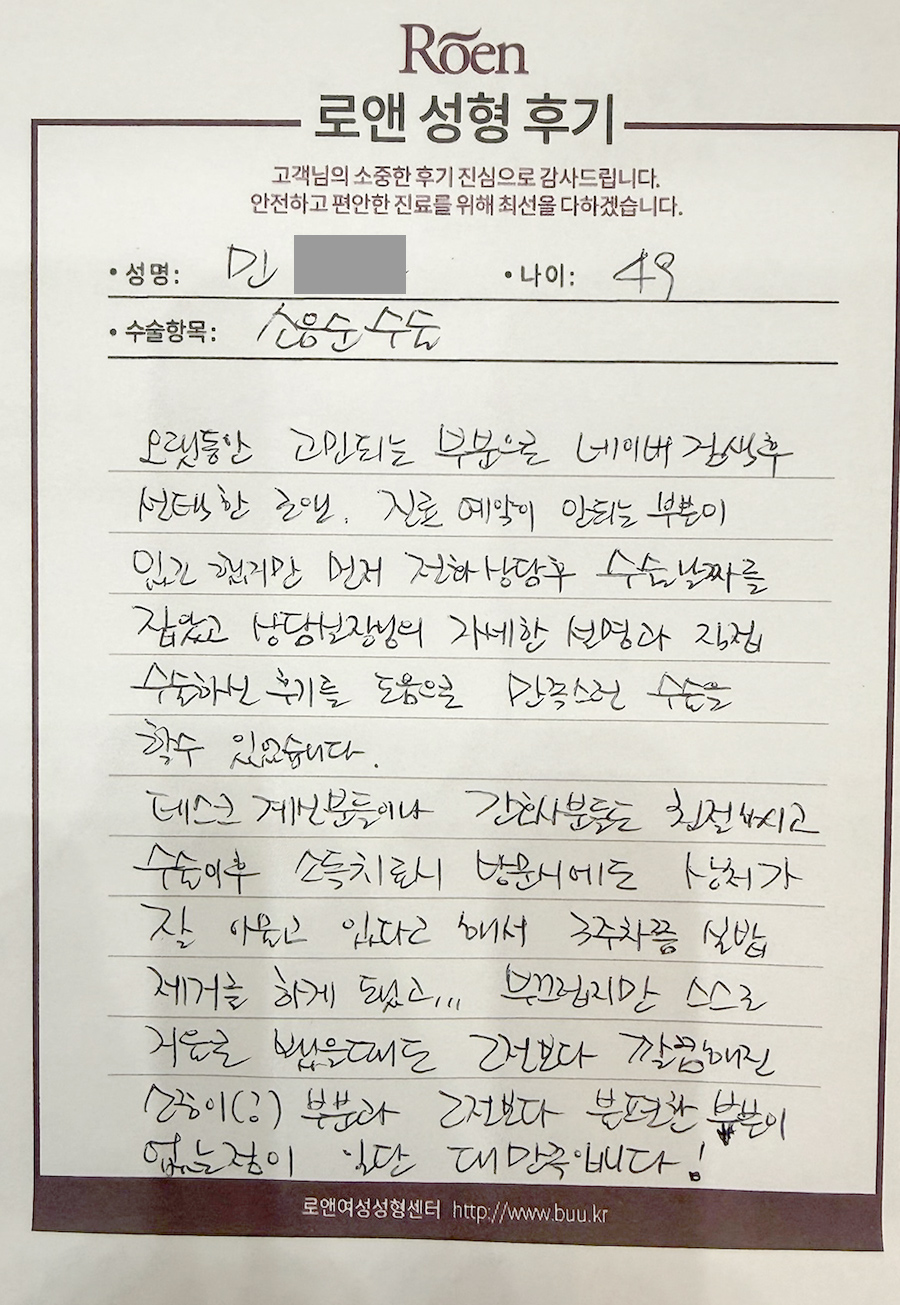 Rōen
로앤 성형 후기
고객님의 소중한 후기 진심으로 감사드립니다.
안전하고 편안한 진료를 위해 최선을 다하겠습니다.
• 성명: 민
• 나이: 49
• 수술항목: 소음순 수술
오랫동안 고민되는 부분으로 네이버 검색후
선택한 로앤. 진료 예약이 안되는 부분이
있긴 했지만 먼저 전화상담후 수술날짜를
잡았고 상담실장님의 자세한 설명과 직접
수술하신 후기를 도움으로 만족스런 수술을
할수 있었습니다.
데스크 계신분들이나 간호사분들도 친절하시고
수술이후 소독치료시 방문시에도 상처가
잘 아물고 있다고 해서 3주차쯤 실밥
제거를 하게 됐고... 부끄럽지만 스스로
거울로 봤을때도 그전보다 깔끔해진
모양이(?) 부분과 그전보다 불편한 부분이
없는점이 일단 대만족입니다!
로앤여성성형센터 http://www.buu.kr